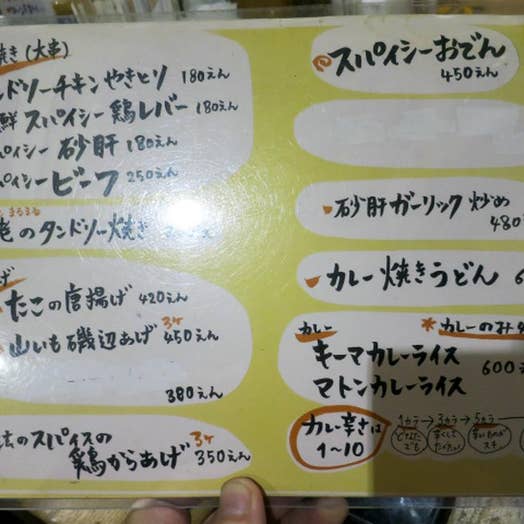 焼き(大串)
ンドリーチキンやきとり 180えん
鮮 スパイシー 鶏レバー 180えん
パイシー 砂肝 180えん
パイシービーフ 250えん
まるまる
のタンドリー焼き
げ
たこの唐揚げ 420えん
山いも磯辺あげ 3ケ 450えん
380えん
のスパイスの
鶏からあげ 3ケ 350えん
スパイシーおでん
450えん
砂肝ガーリック炒め
480
カレー焼きうどん 6
カレー *カレーのみ
キーマカレーライス
600え
マトンカレーライス
カレー辛さは
1~10
1カラ→3カラ→5カラ
どなたでも
辛くて
辛いもの
スキ